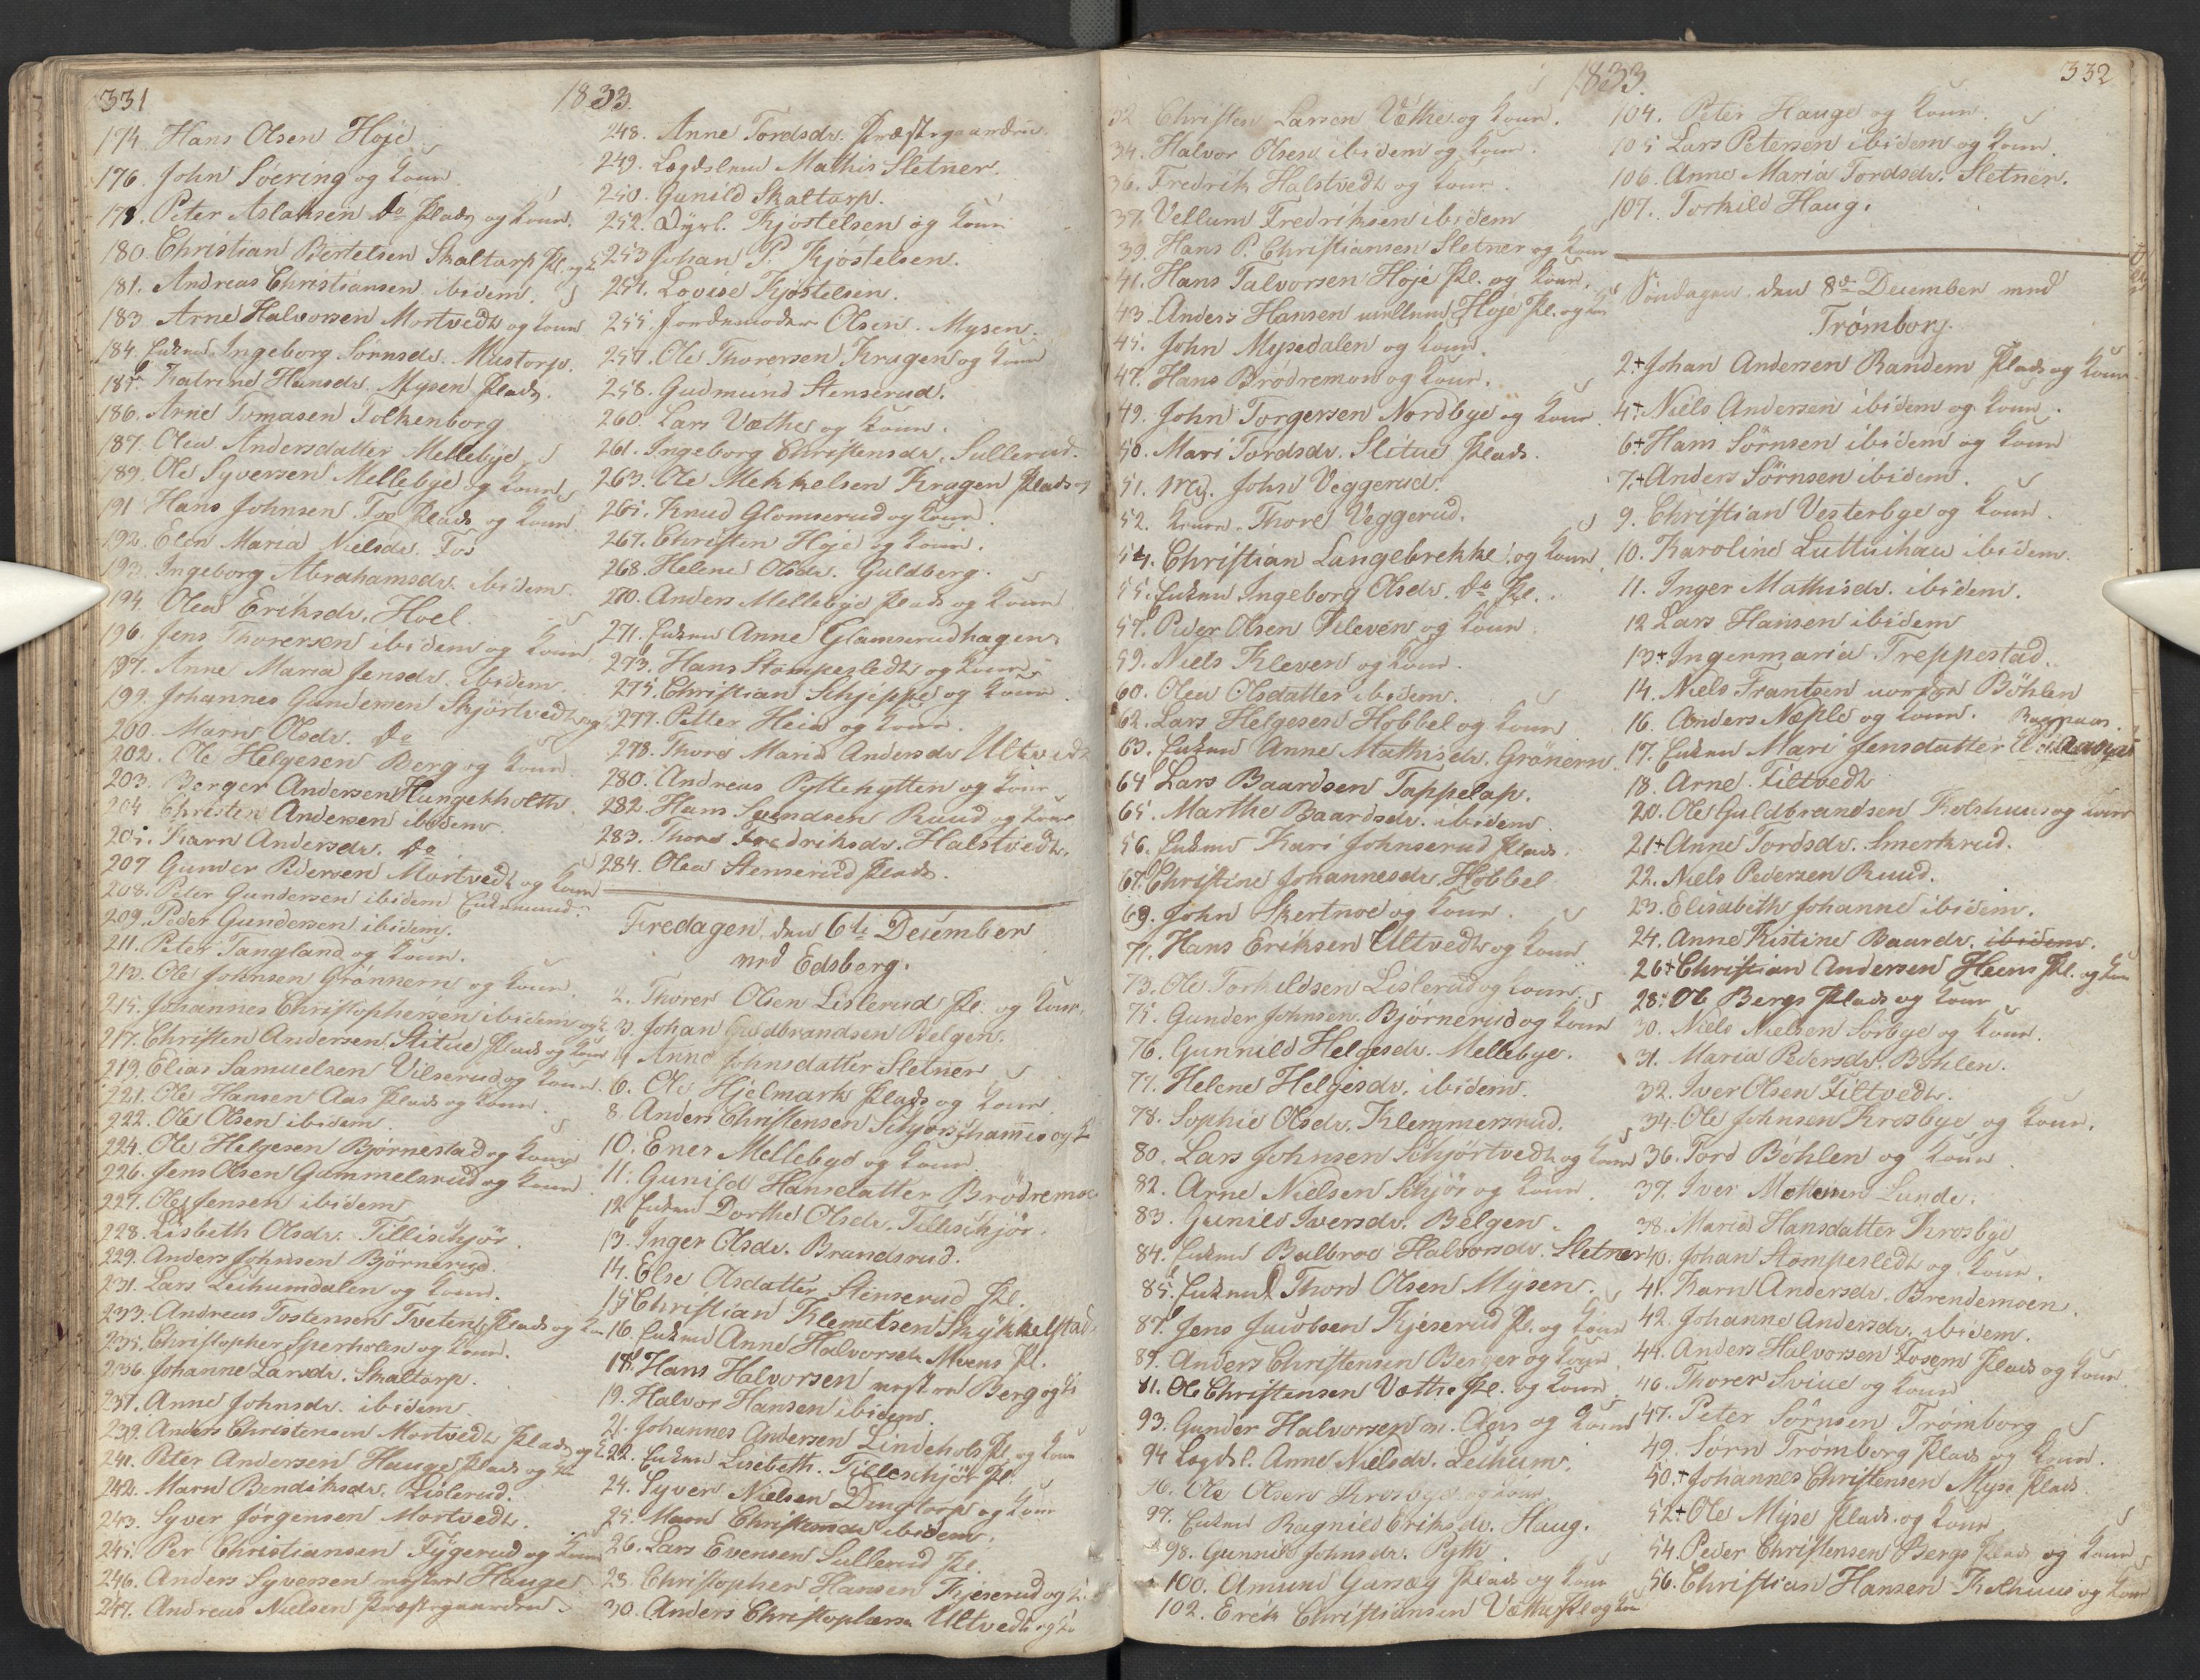 331
1833.
174. Hans Olsen Høje
176. John Soering og Kone
178. Peter Aslaksen do Plads og Kone.
180. Christian Bertelsen Skaltorp Pl. og K
181. Andreas Christiansen ibidem.
183. Arne Halvorsen Mortvedt og Kone
184. Enken Ingeborg Sørnsdr. Mustorp.
185. Katrine Hansdr. Mysen Plads.
186. Arne Tomasen Folkenborg
187. Olea Andersdatter Mellebye
189. Ole Syversen Mellebye og Kone
191. Hans Johnsen Fos Plads og Kone
192. Elen Maria Nielsdr. Fos
193. Ingeborg Abrahamsdr. ibidem.
194. Olea Eriksdr. Hoel.
196. Jens Thorersen ibidem og Kone
197. Anne Maria Jensdr. ibidem.
199. Johannes Gundersen Skjørtvedt og
200. Marn Olsdr. do
202. Ole Helgesen Berg og Kone
203. Berger Andersen Hungerholth.
204. Christen Andersen ibidem.
205. Karn Andersdr. do
207. Gunder Pedersen Mortvedt og Kone
208. Peter Gundersen ibidem Enkemand.
209. Peder Gundersen ibidem.
211. Peter Tangland og Kone.
213. Ole Johnsen Grønnern og Kone
215. Johannes Christophersen ibidem og K.
217. Christen Andersen Slitue Plads og Kone
219. Elias Samuelsen Vilserud og Kone.
221. Ole Hansen Aas Plads og Kone.
222. Ole Olsen ibidem.
224. Ole Helgesen Bjørnestad og Kone
226. Jens Olsen Gammelsrud og Kone
227. Ole Jensen ibidem
228. Lisbeth Olsdr. Tillischjør.
229. Anders Johnsen Bjørnerud.
231. Lars Leihumdalen og Kone.
233. Andreas Tostensen Tveten Plads og Ko
235. Christopher Sperholen og Kone.
236. Johanne Larsdr. Skaltorp.
237. Anne Johnsdr. ibidem.
239. Anders Christensen Mortvedt Plads og K
241. Peter Andersen Hauge Plads og K
242. Marn Bendiksdr. Lislerud.
243. Syver Jørgensen Mortvedt.
245. Per Christiansen Fygerud og Kone
246. Anders Syversen Hauge
247. Andreas Nielsen Præstegaarden.
248. Anne Tordsdr. Præstegaarden.
249. Lægdslem Mathis Sletner.
250. Gunild Skaltorp.
252. Kjøstelsen og Kone
253. Johan P. Kjøstelsen.
254. Lovise Kjøstelsen.
255. Jordemoder Olsen. Mysen.
257. Ole Thorersen Kragen og Kone
258. Gudmund Stenserud.
260. Lars Væthe og Kone.
261. Ingeborg Christensdr. Sullerud.
263. Ole Mekkelsen Kragen Plads og
265. Knud Glomserud og Kone.
267. Christen Høje og Kone.
268. Helene Olsdr. Guldberg.
270. Anders Mellebye Plads og Kone
271. Enken Anne Glamserudhagen.
273. Hans Stompesledt og Kone.
275. Christian Schjeppe og Kone
277. Petter Hein og Kone.
278. Thore Marie Andersdr Ultvedt
280. Andreas Pyttehytten og Kone
282. Hans Svendsen Ruud og Kone
283. Thore Fredriksdr. Halstvedt.
284. Olea Stenserud Plads.
Fredagen, den 6te December
ved Edsberg.
2. Thorer Olsen Lislerud Pl. og Kone.
3. Johan Guldbrandsen Belgen.
4. Anne Johnsdatter Sletner
6. Ole Hjelmark Plads og Kone
8. Anders Christensen Schjørshammer og K
10. Ener Mellebye og Kone
11. Gunild Hansdatter Brødremoe
12. Enken Dorthe Olsdr. Tillischjør.
13. Inger Olsdr. Brandsrud.
14. Else Olsdatter Stenserud Pl.
15. Christian Klemetsen Skykkelstad.
16. Enken Anne Halvorsdr. Moens Pl.
18. Hans Halvorsen Berg og K
19. Halvor Hansen ibidem.
21. Johannes Andersen Lindehols Pl. og Kone
22. Enken Lisebeth. Tilleschjør Pl.
24. Syver Nielsen Dingtorp og Kone
25. Marn Christensdr ibidem.
26. Lars Evensen Sullerud Pl.
28. Christopher Hansen Kjeserud og K.
30. Anders Christophersen Ultvedt og Ko
1833.
332
32. Christen Larsen Væthe og Kone.
34. Halvor Olsen ibidem og Kone.
36. Fredrik Halstvedt og Kone.
37. Vellum Fredriksen ibidem
39. Hans P. Christiansen Sletner og Kone
41. Hans Talvorsen Høje Pl. og Kone.
43. Anders Hansen mellem Høje Pl. og Ko
45. John Mysedalen og Kone.
47. Hans Brødremoe og Kone.
49. John Torgersen Nordbye og Kone.
50. Mari Tordsdr. Slitue Plads.
51. John Veggerud.
52. Konen Thore Veggerud.
54. Christian Langebrekke og Kone.
55. Enken Ingeborg Olsdr. do Pl.
57. Peder Olsen Kleven og Kone
59. Niels Kleven og Kone.
60. Olea Olsdatter ibidem.
62. Lars Helgesen Hobbel og Kone
63. Enken Anne Mathisdr. Grønern.
64. Lars Baardsen Tappelap.
65. Marthe Baardsdr. ibidem.
56. Enken Kari Johnserud Plads.
67. Christine Johannesdr. Hobbel
69. John Skertnoe og Kone.
71. Hans Eriksen Ultvedt og Kone
73. Ole Torkildsen Lislerud og Kone.
75. Gunder Johnsen. Bjørnerud og Kone
76. Gunnild Helgesdr. Mellebye.
77. Helene Helgesdr. ibidem.
78. Sophie Olsdr. Klemmersrud.
80. Lars Johnsen Schjørtvedt og Kone
82. Arne Nielsen Schjør og Kone.
83. Gunild Iversdr. Belgen.
84. Enken Balbroe Halvorsdr. Sletner
85. Enkem. Thord Olsen Mysen.
87. Jens Jacobsen Kjeserud Pl. og Kone
89. Anders Christensen Berger og Kone
91. Ole Christensen Væthe Pl. og Kone.
93. Gunder Halvorsen n. Aas og Kone
94. Lægdsl. Anne Nielsdr. Leihum.
96. Ole Olsen Krosbye og Kone
97. Enken Ragnild Eriksdr. Haug.
98. Gunnild Johnsdr. Pytt
100. Amund Garsæg Plads og Kone
102. Erik Christiansen Væthe Pl og Ko
104. Peter Hauge og Kone.
105. Lars Petersen ibidem og Kone
106. Anne Maria Tordsdr. Sletner.
107. Torkild Haug.
Søndagen, den 8de December ved
Trømborg.
2.+ Johan Andersen Randem Plads og Kone
4+. Niels Andersen ibidem og Kone.
6+ Hans Sørnsen ibidem og Kone
7.+ Anders Sørnsen ibidem.
9. Christian Vesterbye og Kone.
10. Karoline ibidem.
11. Inger Mathisdr. ibidem.
12. Lars Hansen ibidem
13+ Ingermaria Treppestad.
14. Niels Frantsen Bøhlen
16. Anders Næple og Kone.
17. Enken Mari Jensdatter
18. Arne Tiltvedt
20. Ole Guldbrandsen Kolshuus og Kone
21+ Anne Tordsdr. Smerkrud.
22. Niels Pedersen Ruud.
23. Elisabeth Johanne ibidem.
24. Anne Kistine Baardsdr. ibidem.
26+ Christian Andersen Heens Pl. og Kone
28. Ole Bergs Plads og Kone
30. Niels Nielsen Sørbye og Kone.
31. Maria Pedersdr. Bøhlen.
32. Iver Olsen Tiltvedt.
34. Ole Johnsen Krosbye og Kone.
36. Tord Bøhlen og Kone
37. Iver Mathisen Lunde.
38. Marie Hansdatter Krosbye
40. Johan Stompesledt og Kone.
41. Karn Andersdr. Brendemoen.
42. Johanne Andersdr. ibidem.
44. Anders Halvorsen Fosem Plads og Kone
46. Thorer Sviue og Kone
47. Peter Sørnsen Trømborg
49. Sørn Trømborg Plads og Kone.
50.+ Johannes Christensen Myse Plads.
52+ Ole Myse Plads og Kone
54. Peder Christensen Bergs Plads og Kone
56. Christian Hansen Kolhuus og Kone